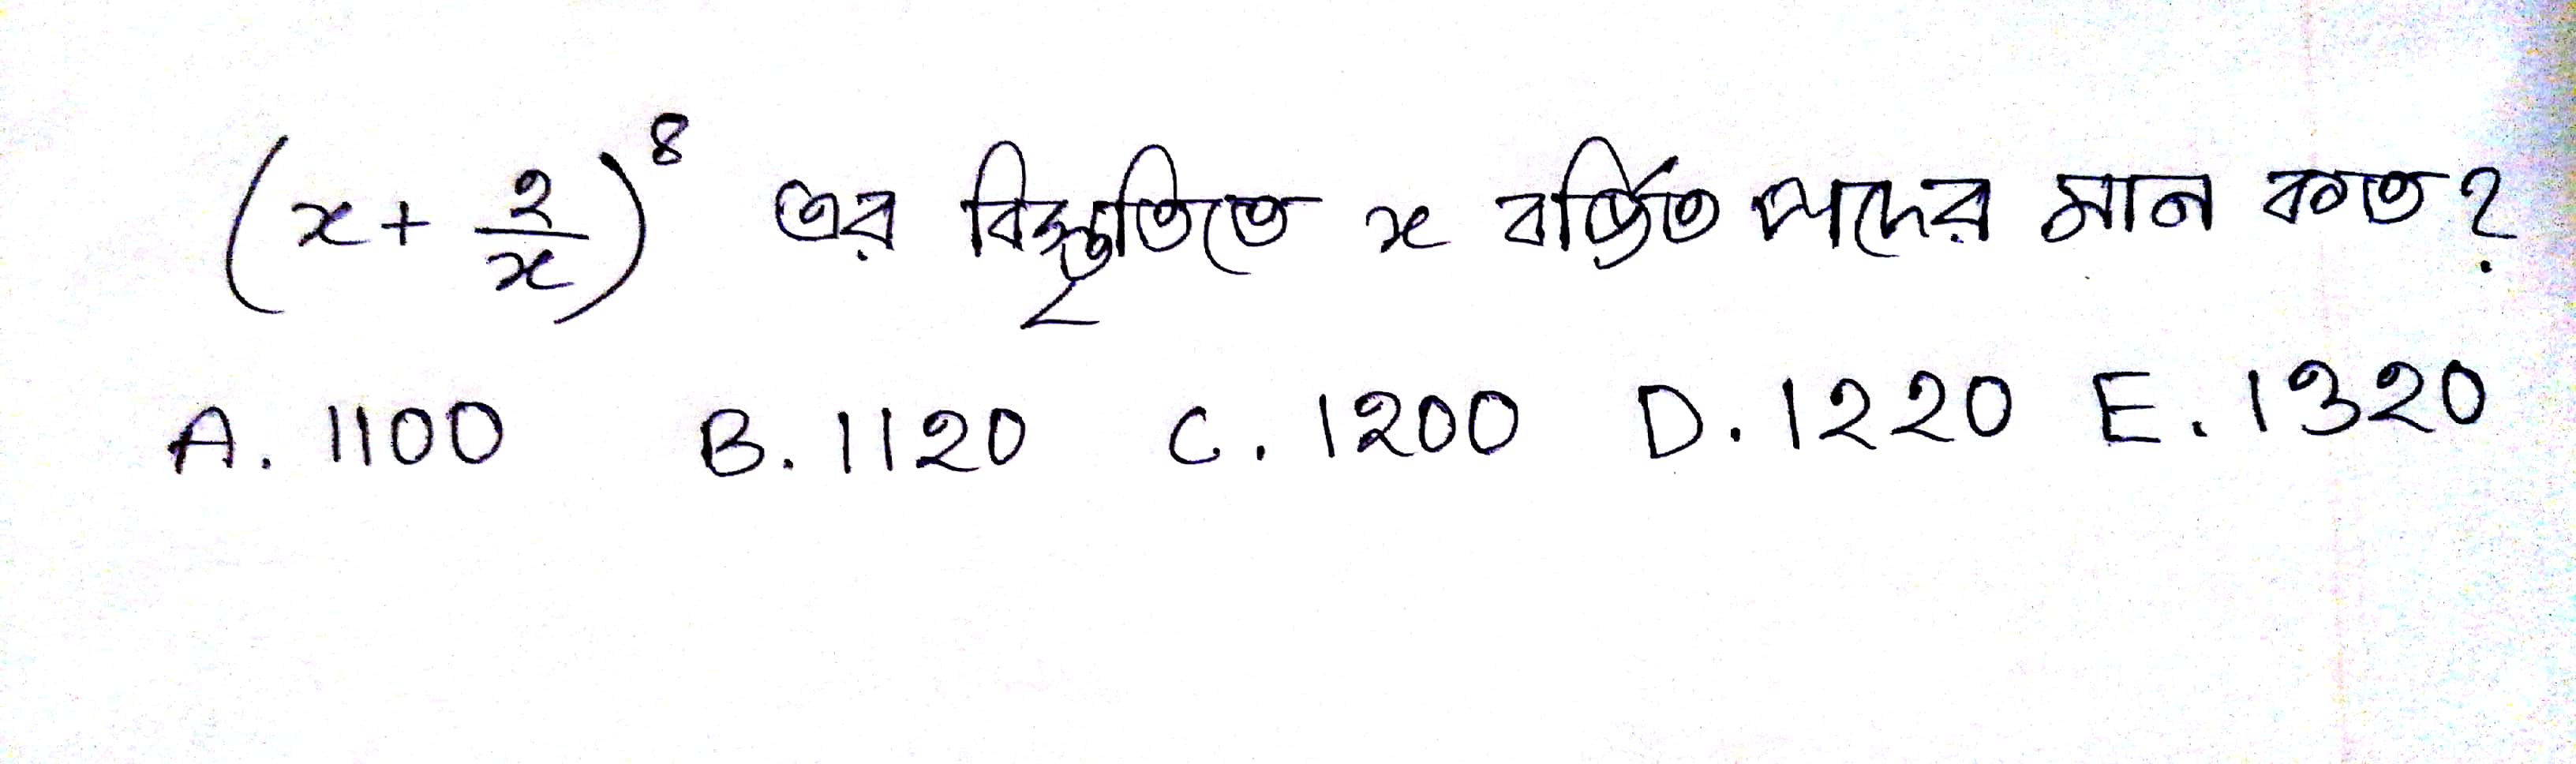 (x + 2/x)^8 এর বিস্তৃতিতে x বর্জিত পদের মান কত?
A. 1100 B. 1120 C. 1200 D. 1220 E. 1320